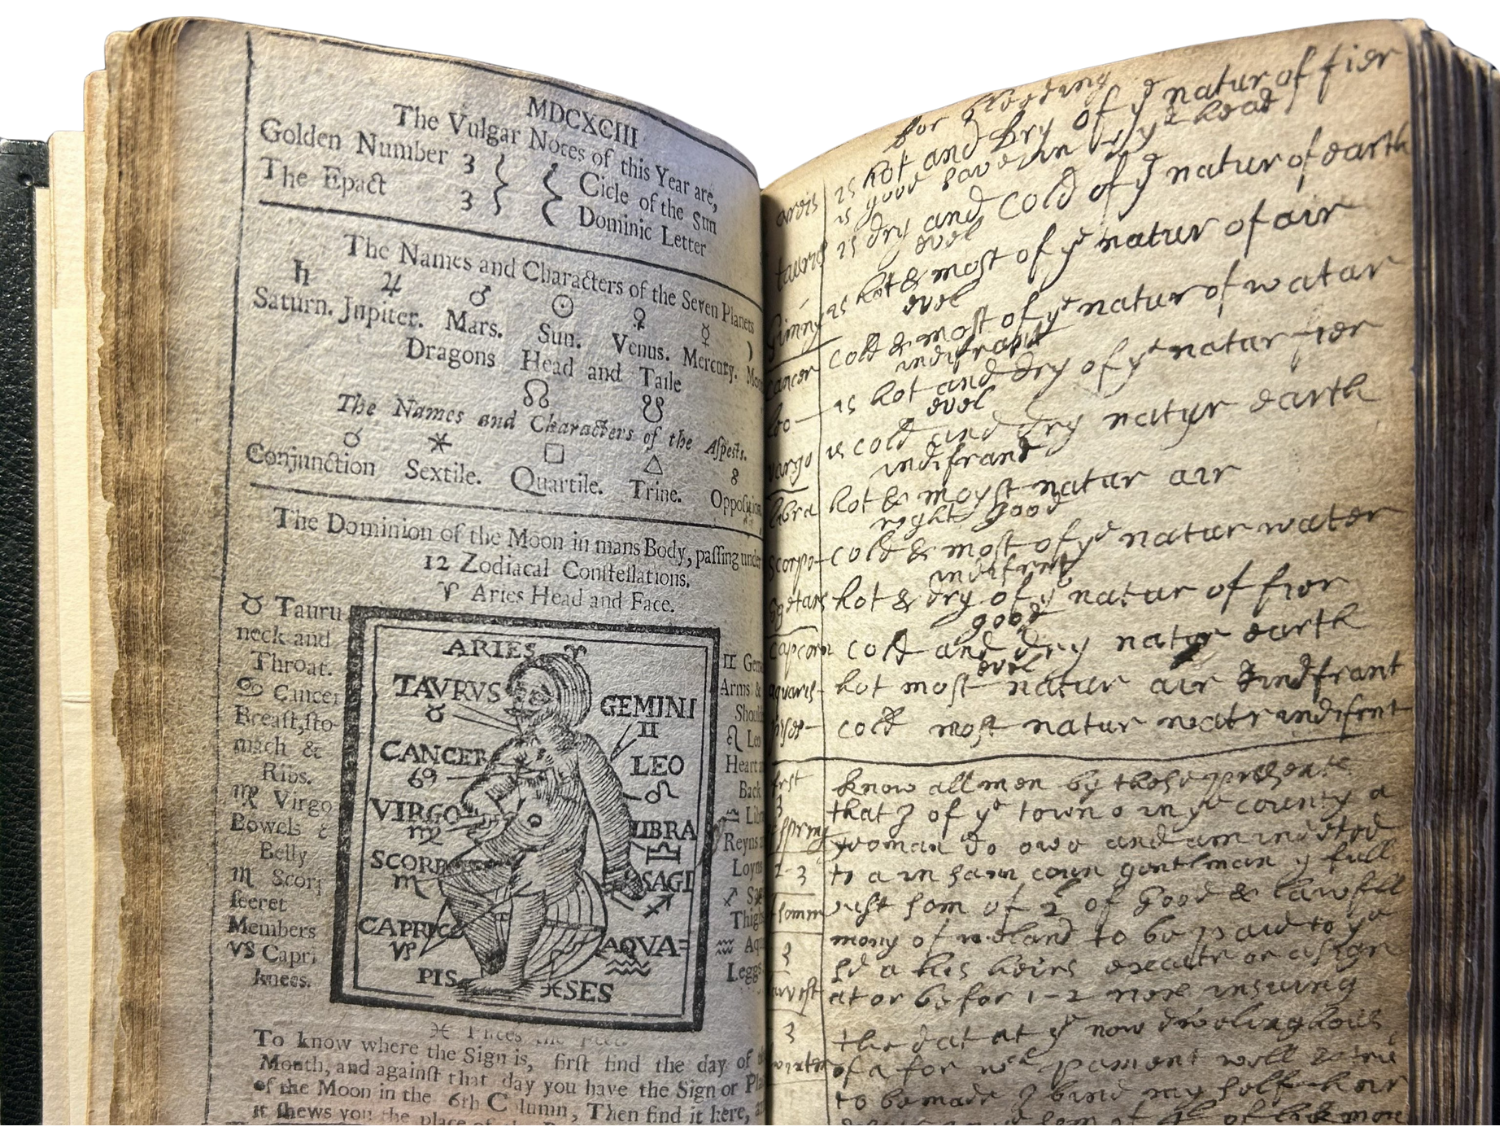 MDCXCIII
The Vulgar Notes of this Year are,
Golden Number 3 Cicle of the Sun
The Epact 3 Dominic Letter
The Names and Characters of the Seven Planets
♄ ♃ ♂ ☉ ♀ ☿ ☽
Saturn. Jupiter. Mars. Sun. Venus. Mercury.
Dragons Head and Taile
☊ ☋
The Names and Characters of the Aſpects.
☌ ⚹ □ △ ☍
Conjunction Sextile. Quartile. Trine. Oppoſition
The Dominion of the Moon in mans Body, paſſing under
12 Zodiacal Conſtellations.
♈ Aries Head and Face.
♉ Tauru
neck and
Throat.
♋ Cancer
Breaſt, ſto-
mach &
Ribs.
♍ Virgo
Bowels &
Belly
♏ Scorp
ſecret
Members
♑ Capri
knees.
ARIES ♈
TAVRVS
♉
GEMINI
♊
CANCER
♋
LEO
♌
VIRGO
♍
LIBRA
♎
SCORP
♏
SAGI
♐
CAPRIC
♑
AQVA=
♒
PIS ♓SES
♊ Gem
Arms &
Shoul
♌ Leo
Heart
Back
♎ Lib
Reyns
Loyn
♐ S
Thigh
♒ Aq
Leggs
♓ Piſces the
To know where the Sign is, firſt find the day of
Month, and againſt that day you have the Sign or Pla
of the Moon in the 6th Column, Then find it here,
it ſhews you the place of the
for bleeding
is hot and dry of yͤ natur of fier
is good save in yͤ head
is dry and cold of yͤ natur of earth
evel
is hot & most of yͤ natur of air
evel
cancer cold & most of yͤ natur of watar
indifrant
leo is hot and dry of yͤ natur fier
evel
vargo is cold and dry natur earth
indifrant
libra hot & moyst natur air
right good
scorpo cold & most of yͤ natur water
indifrent
hot & dry of yͤ natur of fier
good
capcorn cold and dry natur earth
evel
aquaris hot most natur air indifrant
cold most natur watr indifrnt
know all men by these presents
3 that J of yͤ town o in yͤ county a
spring yoman do owe and am indeted
2-3 to a in sam coun gentlman yͤ full
somm just som of 2 of Good & lawfll
mony of to be paid to yͤ
3 sd a his heirs execute or asign
at or befor 1-2 next insuing
3 the dat at yͤ now dweling hous
winter of a for wͨ pament well
to be made J bind my self